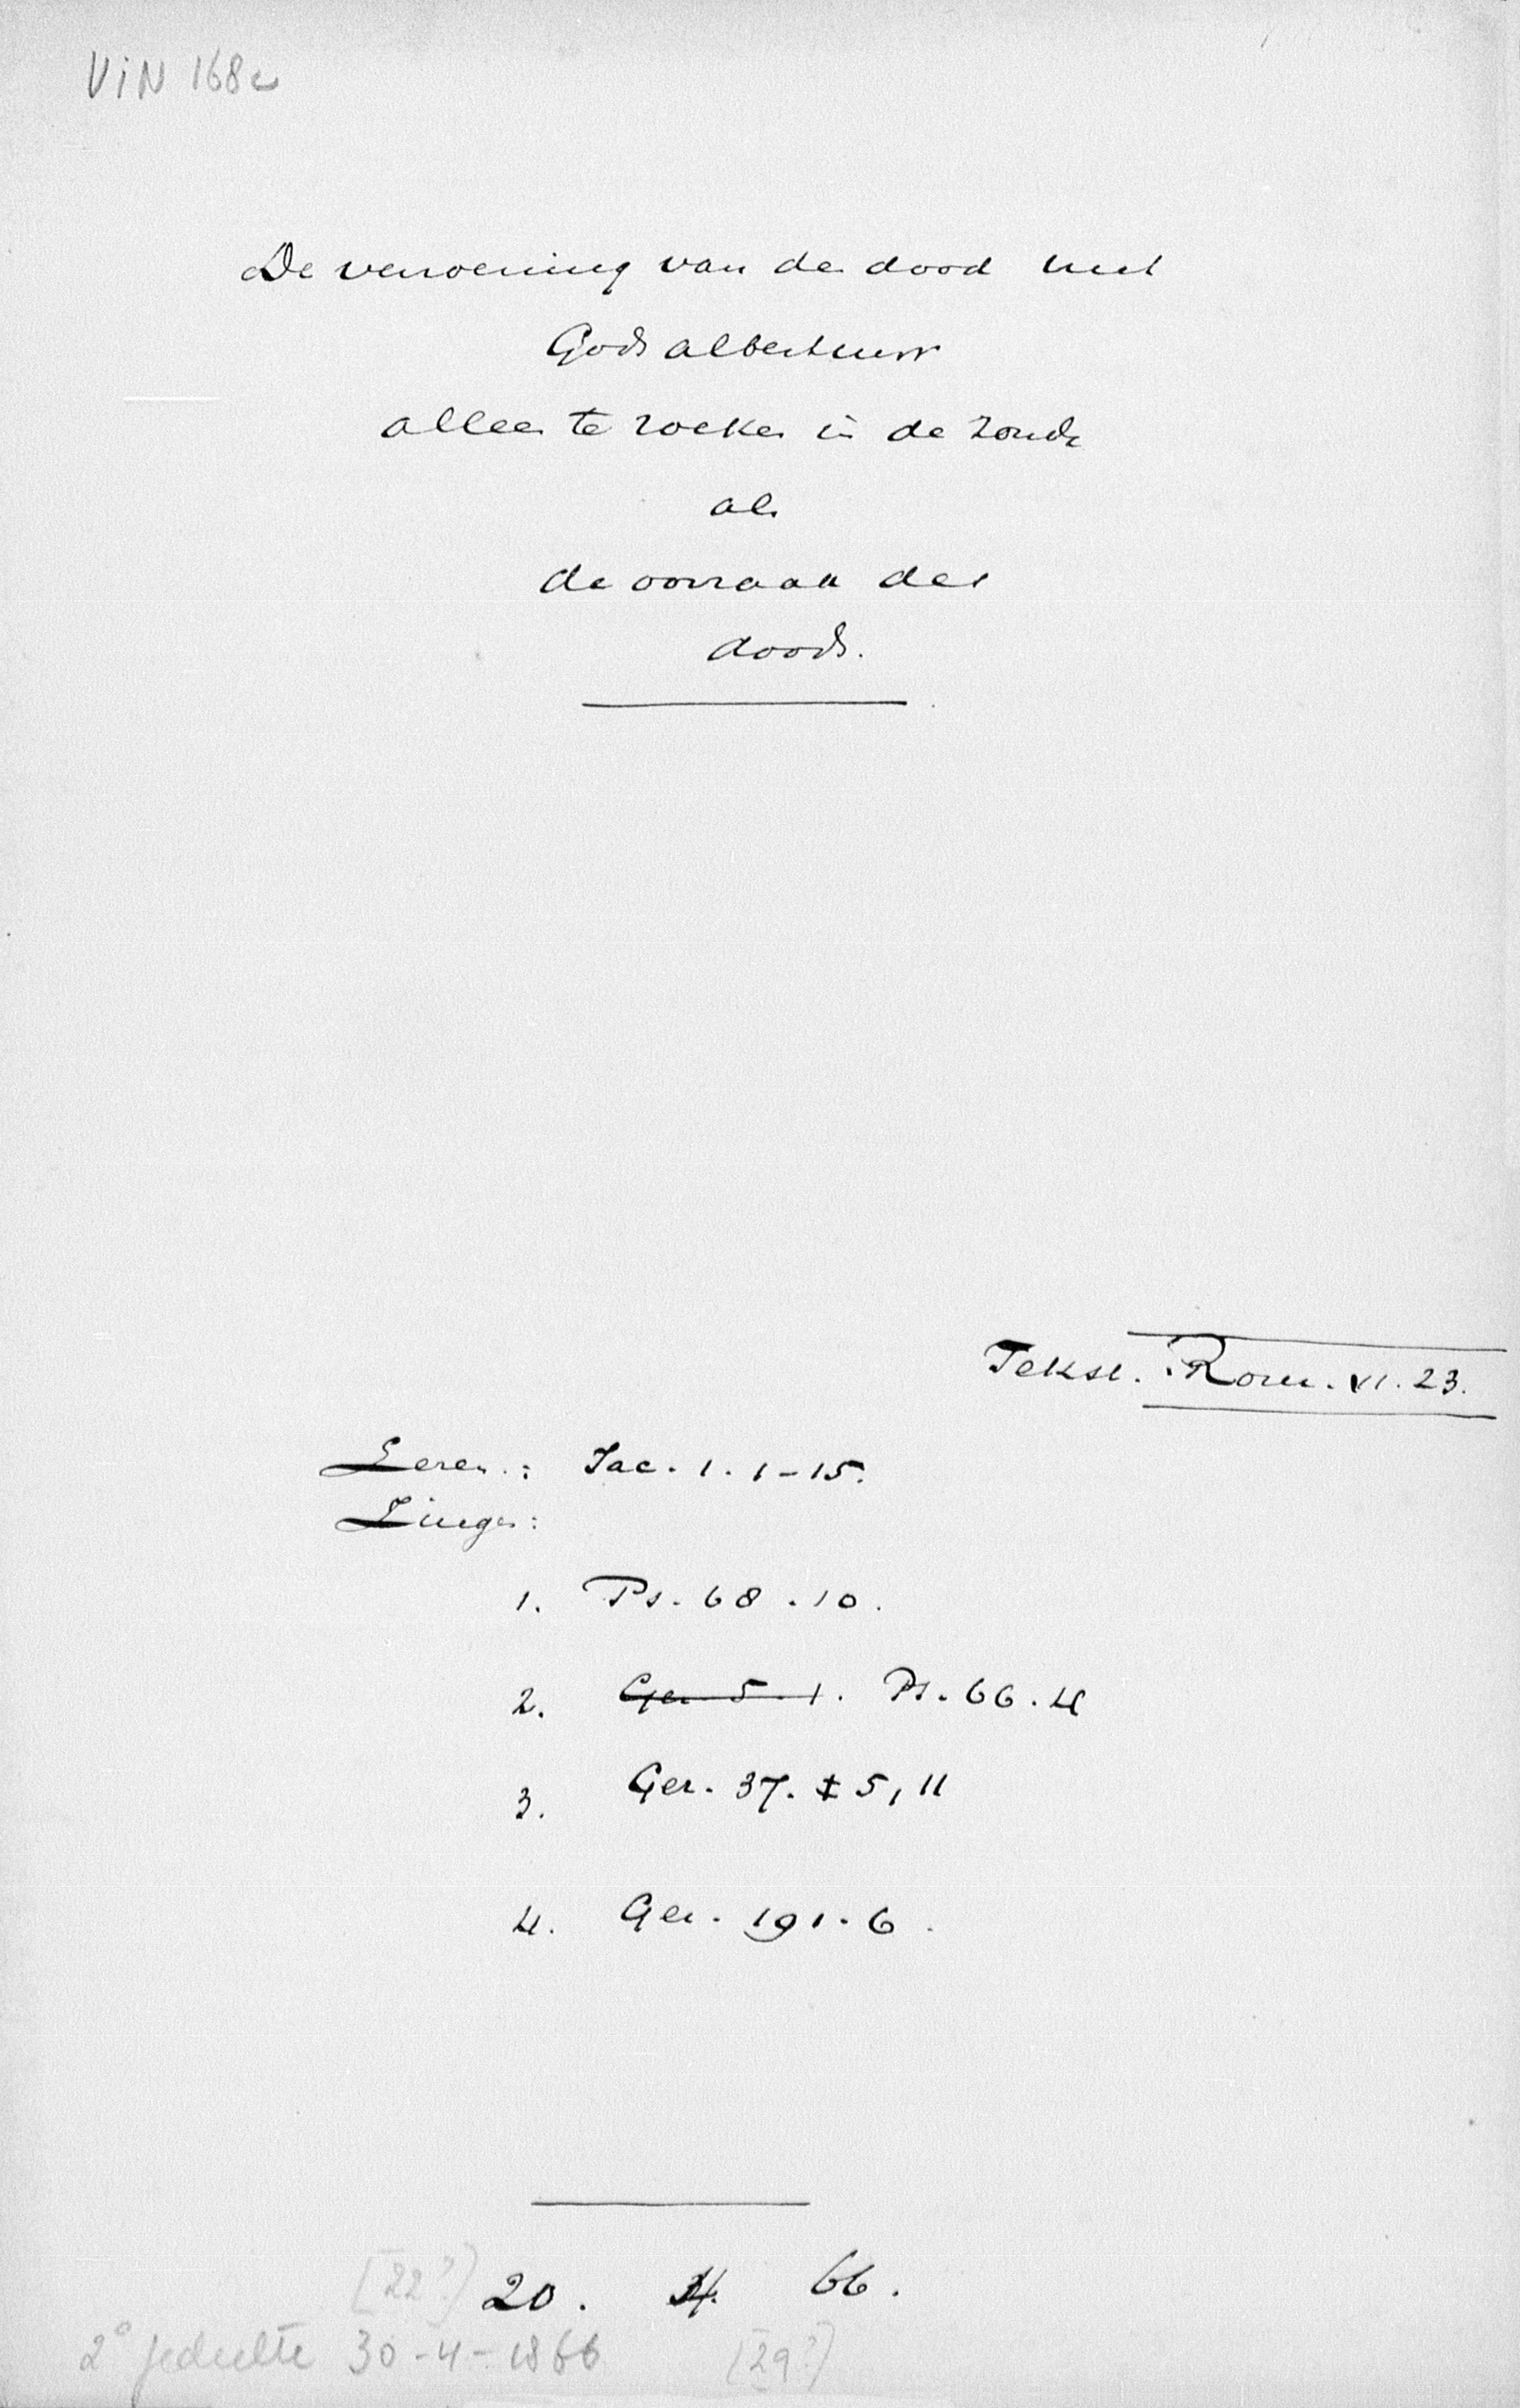 ViN 168c
De verzoening van den dood met
Gods albestuur
alleen te zoeken in de zonde
als
de oorzaak des
doods.
Tekst. Rom. VI. 23.
Lezen.: Jac. 1. 1-15.
Zingen:
1. Ps. 68. 10.
2. Gez 5. 1. Ps. 66. 4
3. Gez. 37. 5, 11
4. Gez. 191. 6.
[22?] 20. 4. 66.
2e gedeelte 30-4-1866 [29?]